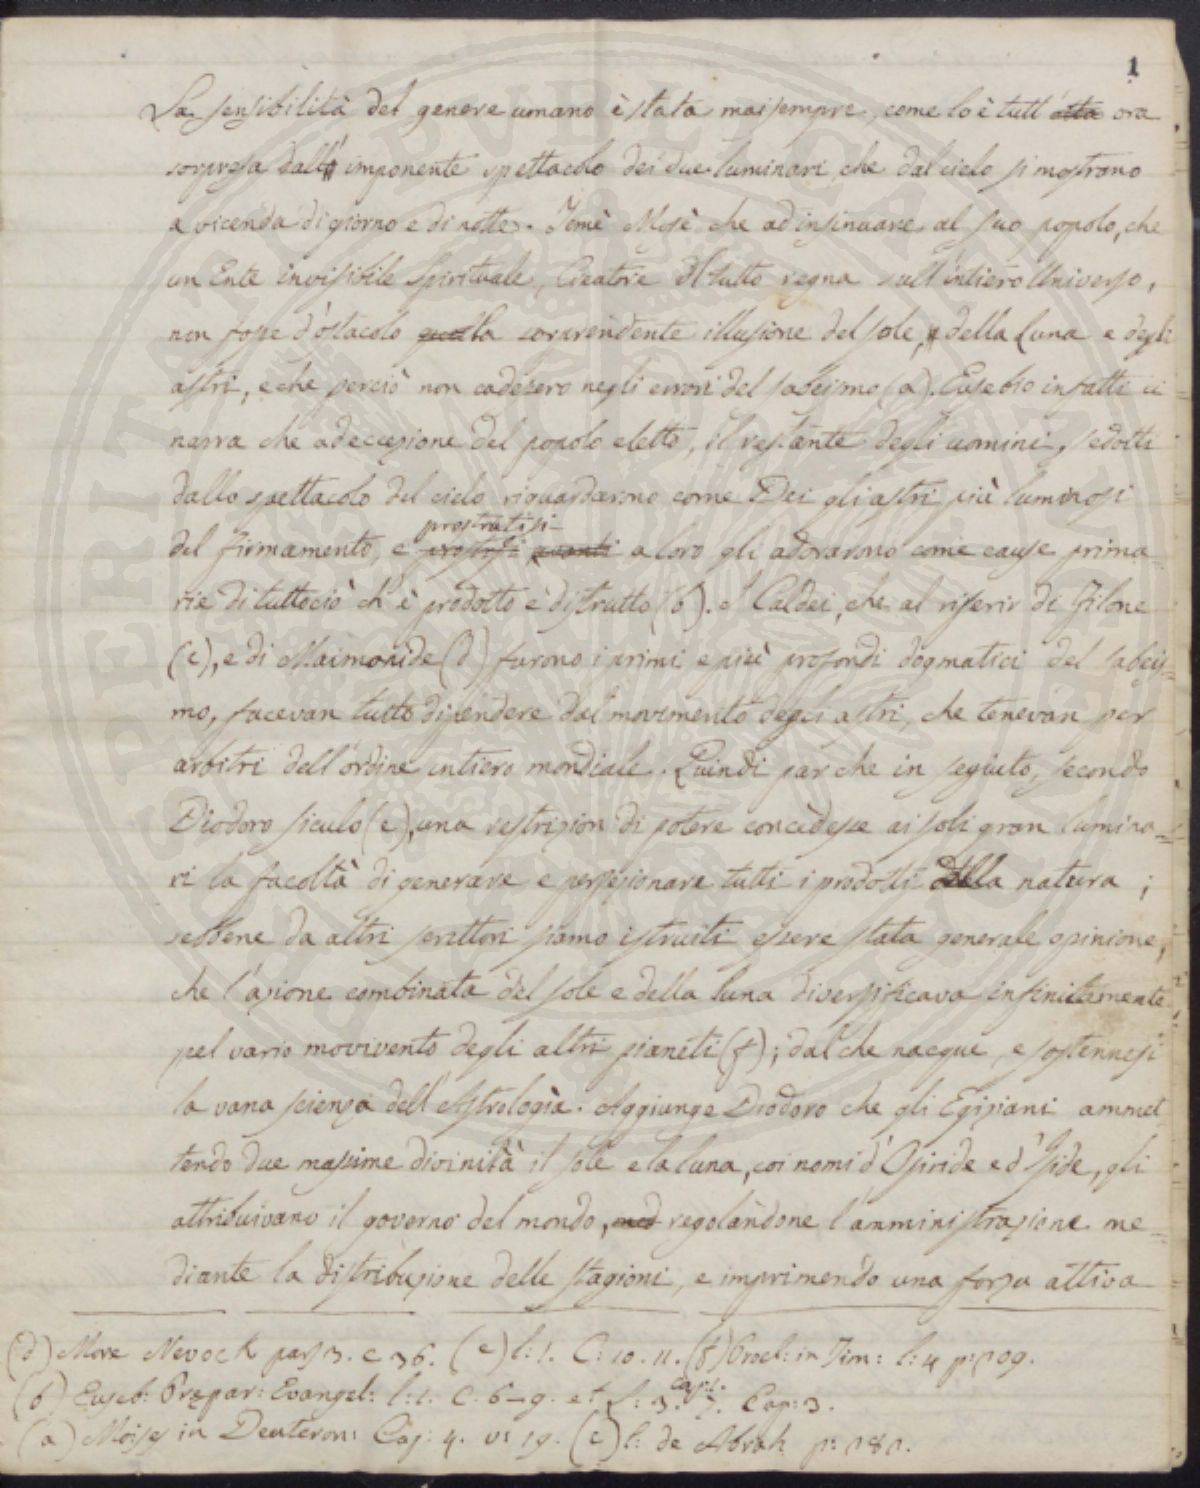 1
La sensibilità del genere umano è stata maisempre, come lo è tutt' atta ora
sorpresa dall' imponente spettacolo dei due luminari che dal cielo si mostrano
a vicenda di giorno e di notte. Temè Mosè che ad insinuare al suo popolo, che
un Ente invisibile Spirituale, Creatore del tutto regna sull'intiero Universo,
non fosse d'ostacolo quella sorprendente illusione del sole, della Luna e degli
astri, e che perciò non cadessero negli errori del sabeismo (a). Eusebio infatti ci
narra che ad eccezione del popolo eletto, il restante degli uomini, sedotti
dallo spettacolo del cielo riguardarono come Dei gli astri più luminosi
prostratisi
del firmamento, e prostrsi avanti a loro gli adorarono come cause prima
rie di tuttociò ch'è prodotto e distrutto (b). I Caldei, che al riferir di Filone
(c), e di Maimonide (d) furono i primi e più profondi dogmatici del sabeis-
mo, facevan tutto dipendere dal movimento degli astri, che tenevan per
arbitri dell'ordine intiero mondiale. Quindi par che in seguito, secondo
Diodoro siculo (e), una restrizion di potere concedesse ai soli gran lumina=
ri la facoltà di generare e perfezionare tutti i prodotti della natura;
sebbene da altri scrittori siamo istruiti essere stata generale opinione,
che l'azione combinata del sole e della luna diversificava infinitamente
pel vario movivento degli altri pianeti (f); dal che nacque, e sostennesi
la vana scienza dell'Astrologìa. Aggiunge Diodoro che gli Egiziani ammet
tendo due massime divinità il sole e la luna, coi nomi d'Osiride e d'Iside, gli
attribuivano il governo del mondo, med regolandone l'amministrazione me-
diante la distribuzione delle stagioni, e imprimendo una forza attiva
(d) More Nevock pars 3. c 36. (e) l: 1. C: 10. 11. (f) Procl: in Tim: l: 4 p: 209.
Cap: 1.
(b) Euseb: Præpar: Evangel: l: 1. C. 6-9. et l: 3. Cap: 3.
(a) Moises in Deuteron: Cap: 4. v: 19. (c) l: de Abrah p: 181.